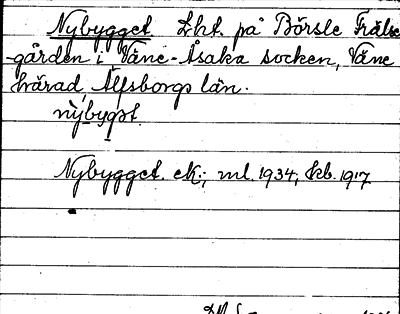 Nybygget Lht. på Börsle Frälse
-gården i Väne-Åsaka socken, Väne
härad, Älfsborgs län.
nỳbygət
Nybygget. eK.; ml. 1934; kb. 1917